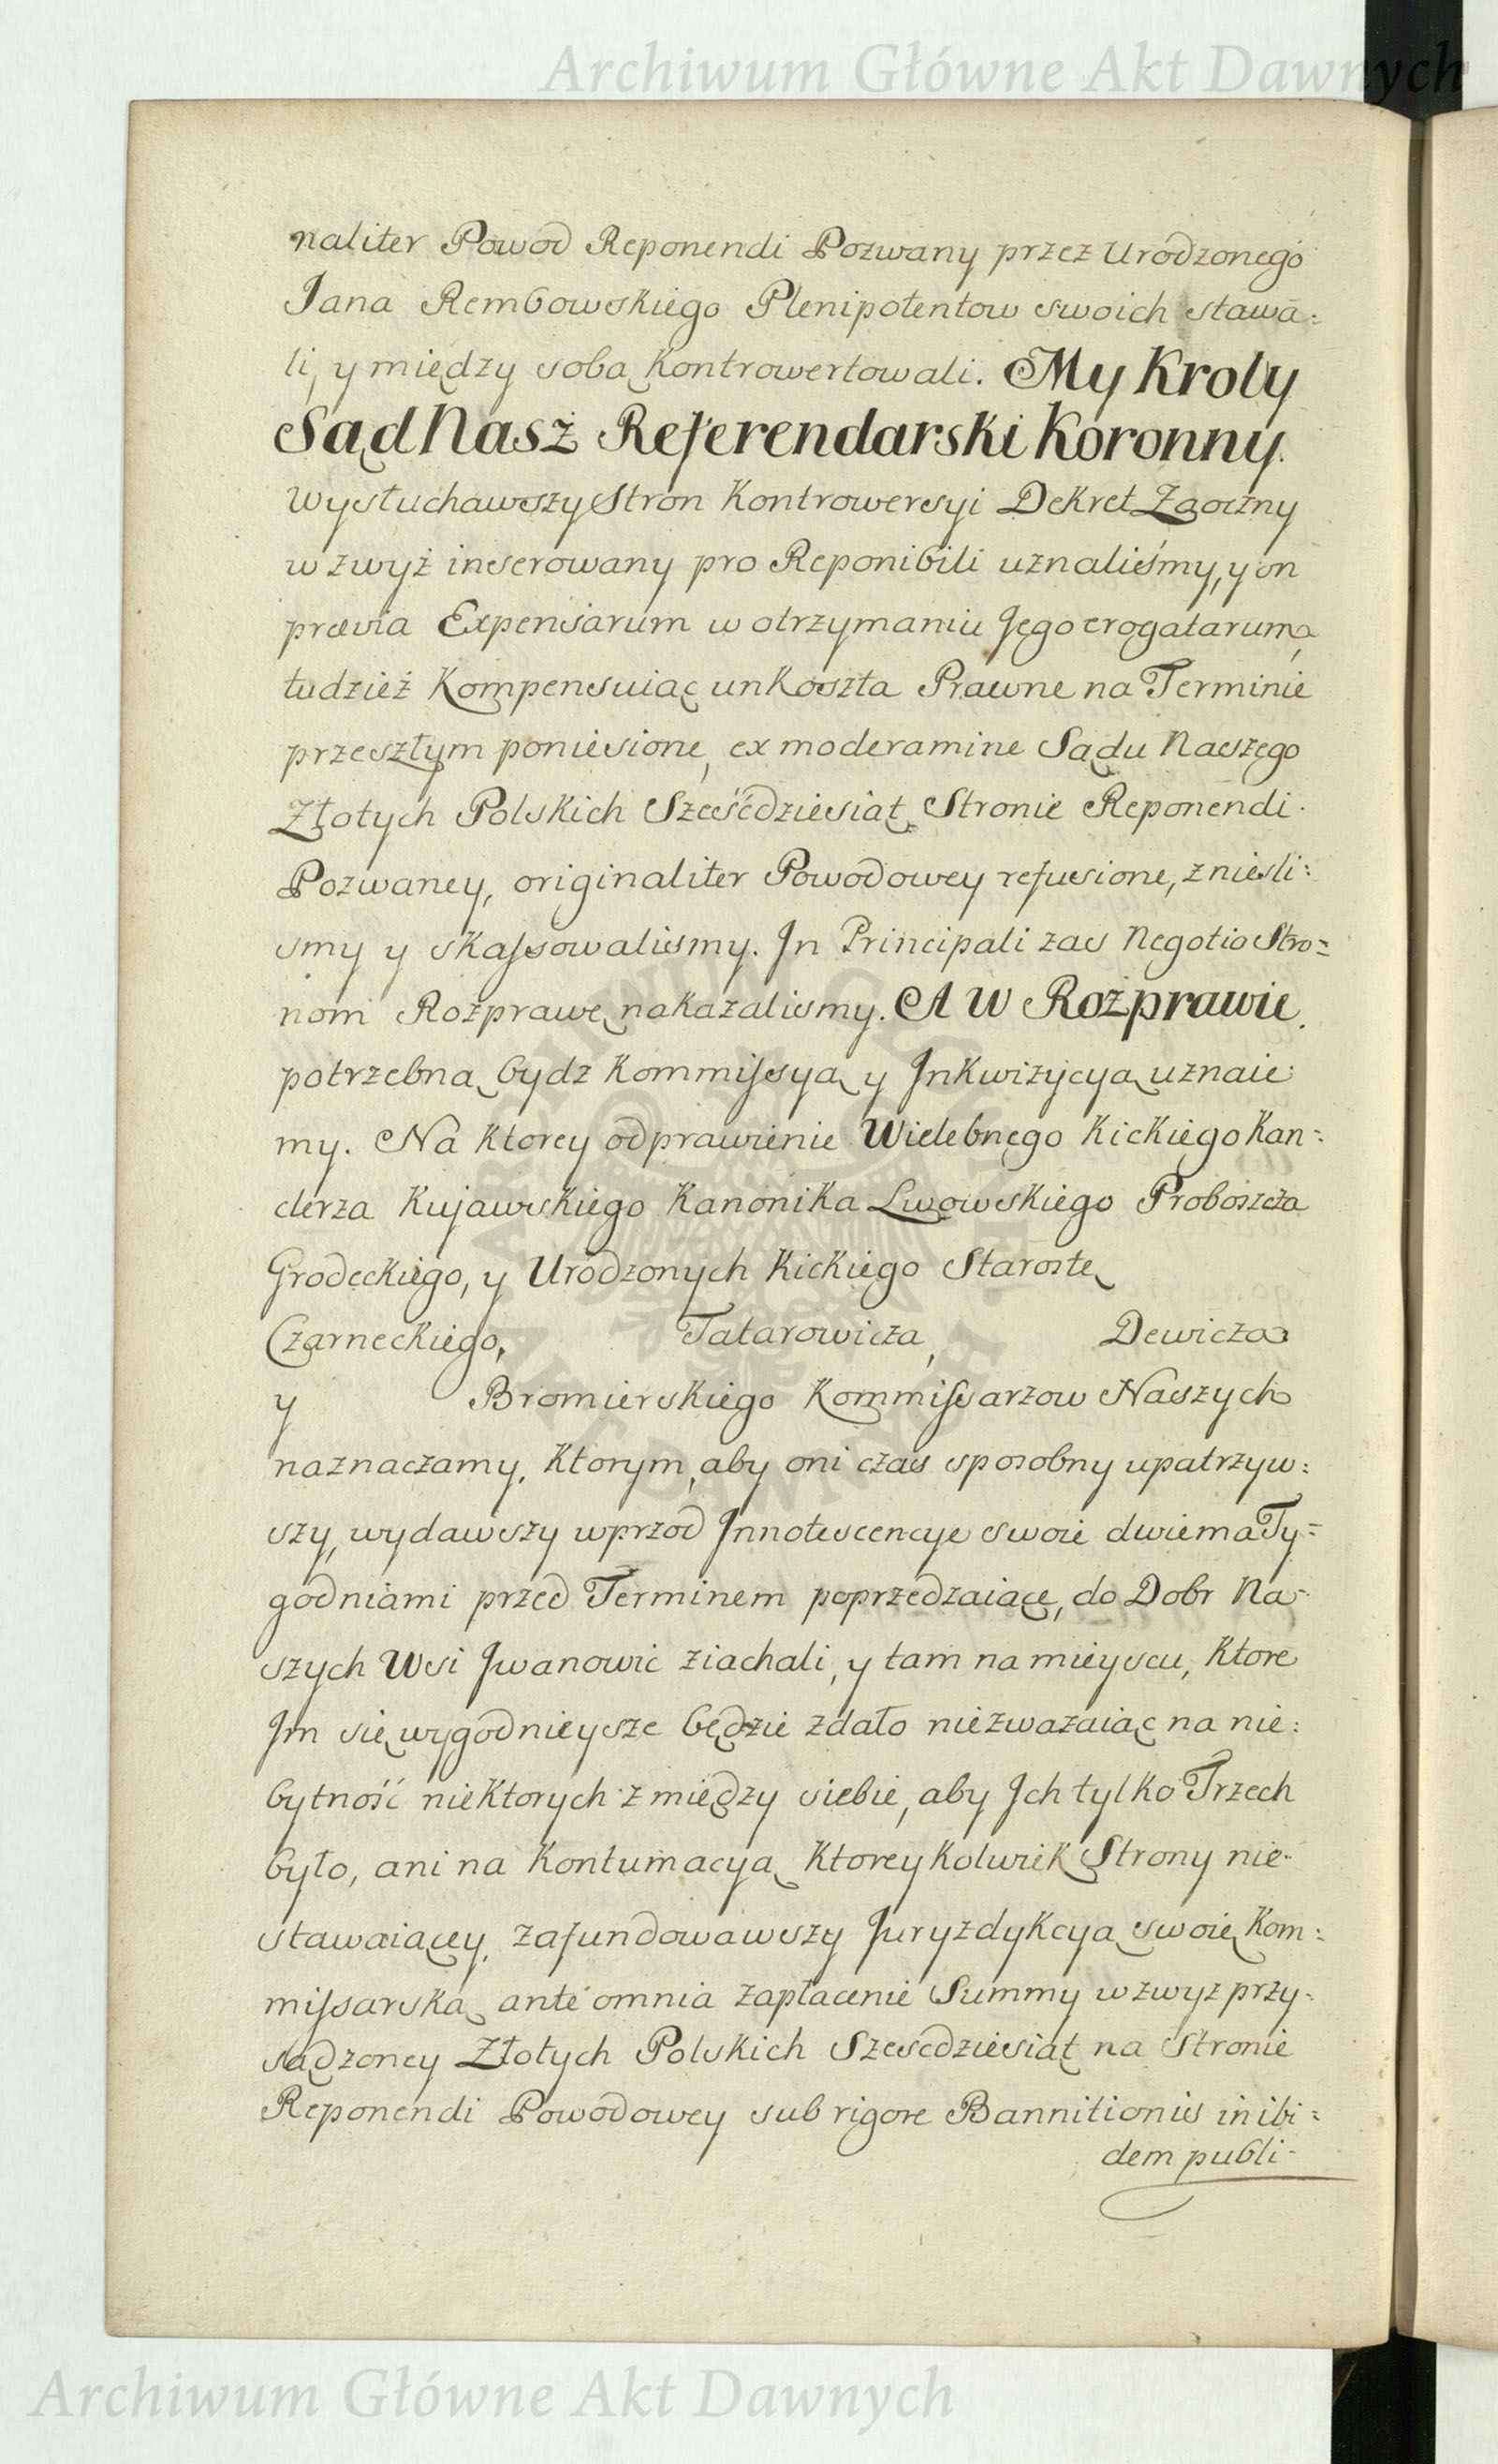 Archiwum Główne Akt Dawnych
naliter Powod Reponendi Pozwany przez Urodzonego
Jana Rembowskiego Plenipotentow swoich stawa:
li, y między sobą Kontrowertowali. My Kroly
Sąd Nasz Referendarski Koronny.
Wysłuchawszy Stron Kontrowersyi Dekret Zaoczny
wzwyż inserowany pro Reponibili uznaliśmy, y on
prævia Expensarum w otrzymaniu Jego erogatarum,
tudzież Kompensuiąc unkoszta Prawne na Terminie
przeszłym poniesione, ex moderamine Sądu Naszego
Złotych Polskich Sześćdziesiąt Stronie Reponendi
Pozwaney, originaliter Powodowey refusione, znieśli:
smy y skassowalismy. In Principali zas Negotio Stro=
nom Rozprawę nakazalismy. A W Rozprawie
potrzebną bydz Kommissyą y Inkwizycyą uznaie:
my. Na Ktorey odprawienie Wielebnego Kickiego Kan:
clerza Kujawskiego Kanonika Lwowskiego Proboszcza
Grodeckiego, y Urodzonych Kickiego Starostę
Czarneckiego, Tatarowicza, Dewicza
y Bromierskiego Kommissarzow Naszych
naznaczamy, Ktorym, aby oni czas sposobny upatrzyw:
szy, wydawszy wprzod Innotescencye swoie dwiema Ty=
godniami przed Terminem poprzedzaiące, do Dobr Na-
szych Wsi Iwanowic ziachali, y tam na mieyscu, Ktore
Im się wygodnieysze będzie zdało niezwazaiąc na nie:
bytność niektorych z między siebie, aby Ich tylko Trzech
było, ani na Kontumacyą Ktorey Kolwiek Strony nie-
stawaiącey, zafundowawszy Juryzdykcyą swoię Kom:
missarską, ante omnia zapłacenie Summy wzwyz przy-
sądzoney Złotych Polskich Szescdziesiąt na Stronie
Reponendi Powodowey sub rigore Bannitionis in ibi=
dem publi-
Archiwum Główne Akt Dawnych